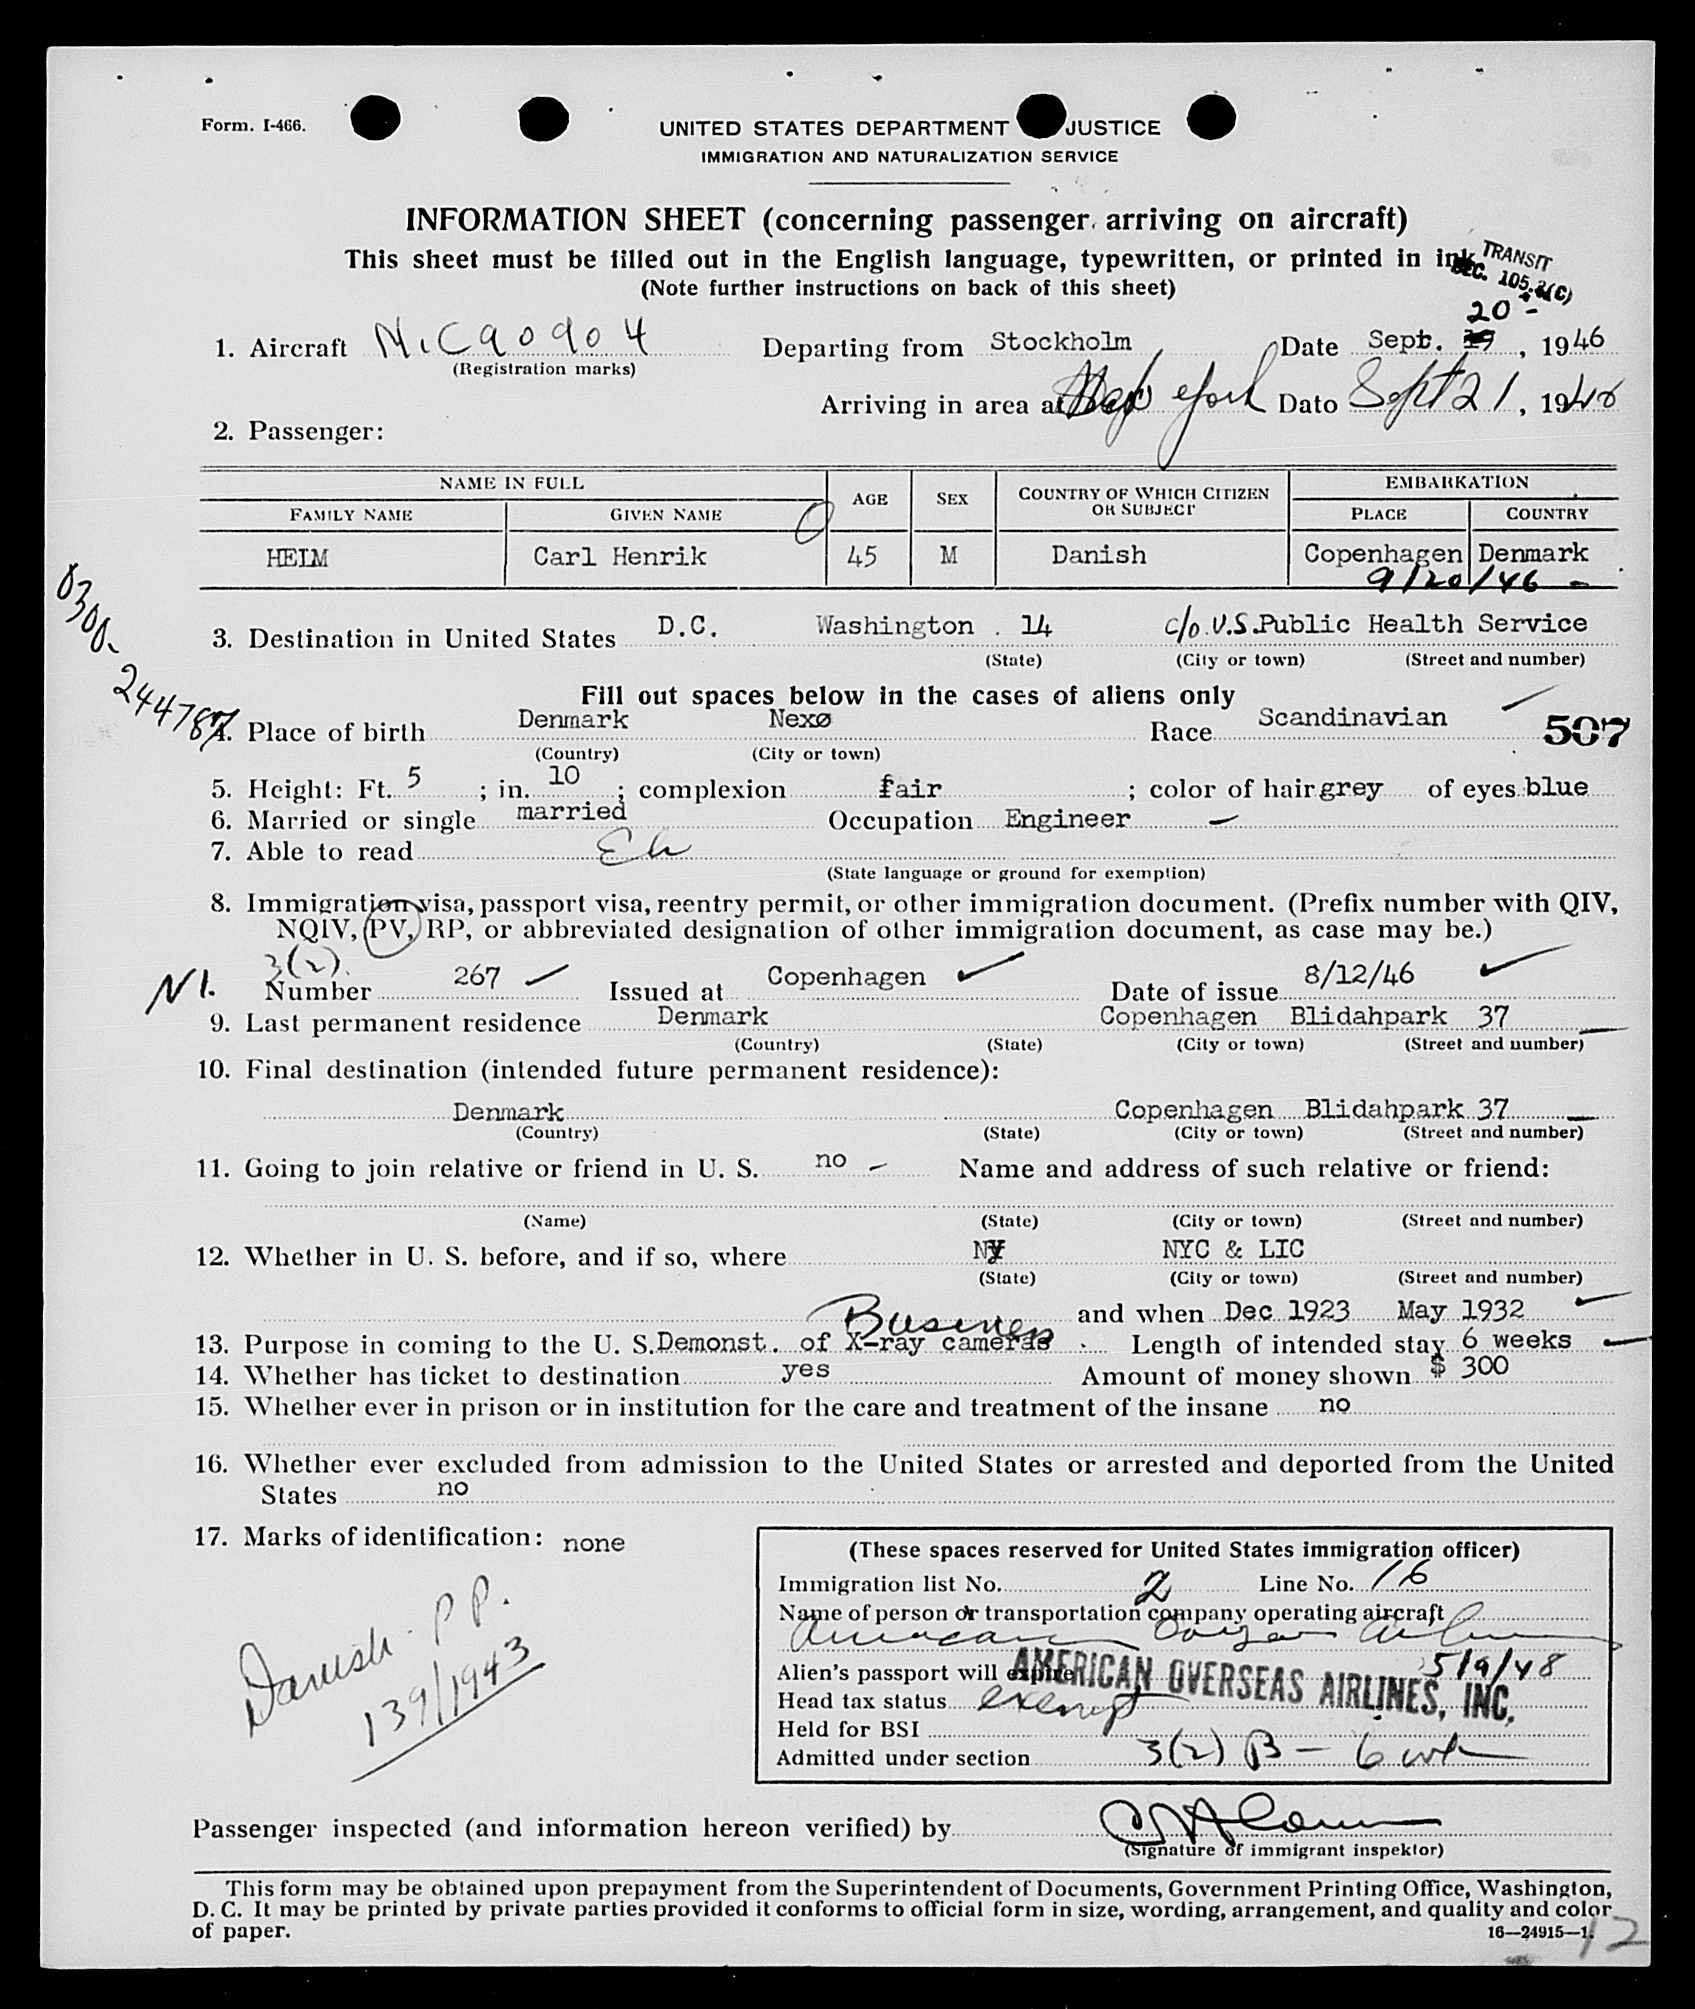 Form. I-466.
UNITED STATES DEPARTMENT JUSTICE
IMMIGRATION AND NATURALIZATION SERVICE
INFORMATION SHEET (concerning passenger arriving on aircraft)
This sheet must be filled out in the English language, typewritten, or printed in ink
TRANSIT
SEC. 105.3(C)
(Note further instructions on back of this sheet)
20
1. Aircraft N.C90904 Departing from Stockholm Date Sept. 19, 1946
(Registration marks)
Arriving in area at New York Date Sept 21, 1946
2. Passenger:
NAME IN FULL AGE SEX COUNTRY OF WHICH CITIZEN OR SUBJECT EMBARKATION
FAMILY NAME GIVEN NAME PLACE COUNTRY
HEIM Carl Henrik 45 M Danish Copenhagen Denmark
9/20/46 -
0300-244787
3. Destination in United States D.C. Washington . 14 c/o U.S.Public Health Service
(State) (City or town) (Street and number)
Fill out spaces below in the cases of aliens only
4. Place of birth Denmark Nexø Race Scandinavian
507
(Country) (City or town)
5. Height: Ft. 5 ; in. 10 ; complexion fair ; color of hair grey of eyes blue
6. Married or single married Occupation Engineer
7. Able to read
(State language or ground for exemption)
8. Immigration visa, passport visa, reentry permit, or other immigration document. (Prefix number with QIV,
NQIV, PV, RP, or abbreviated designation of other immigration document, as case may be.)
3(2).
N1.
Number 267 Issued at Copenhagen Date of issue 8/12/46
9. Last permanent residence Denmark Copenhagen Blidahpark 37
(Country) (State) (City or town) (Street and number)
10. Final destination (intended future permanent residence):
Denmark Copenhagen Blidahpark 37
(Country) (State) (City or town) (Street and number)
11. Going to join relative or friend in U. S. no Name and address of such relative or friend:
(Name) (State) (City or town) (Street and number)
12. Whether in U. S. before, and if so, where NY NYC & LIC
(State) (City or town) (Street and number)
and when Dec 1923 May 1932
Business
13. Purpose in coming to the U. S. Demonst. of X-ray cameras Length of intended stay 6 weeks
14. Whether has ticket to destination yes Amount of money shown $ 300
15. Whether ever in prison or in institution for the care and treatment of the insane no
16. Whether ever excluded from admission to the United States or arrested and deported from the United
States no
17. Marks of identification: none
Danish P P.
139/1943
(These spaces reserved for United States immigration officer)
Immigration list No. 2 Line No. 16
Name of person or transportation company operating aircraft
American Overseas Airlines
Alien's passport will expire 5/9/48
AMERICAN OVERSEAS AIRLINES, INC.
Head tax status exempt
Held for BSI
Admitted under section 3(2) B - 6 wk
Passenger inspected (and information hereon verified) by
(Signature of immigrant inspektor)
This form may be obtained upon prepayment from the Superintendent of Documents, Government Printing Office, Washington,
D. C. It may be printed by private parties provided it conforms to official form in size, wording, arrangement, and quality and color
of paper.
16—24915—1.
12